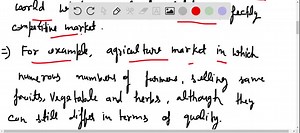 world
fectly
competitive market.
=> For example, agriculture market in which
numerous numbers of farmers, selling same
fruits, vegetable and herbs, although they
can still differ in terms of quality.